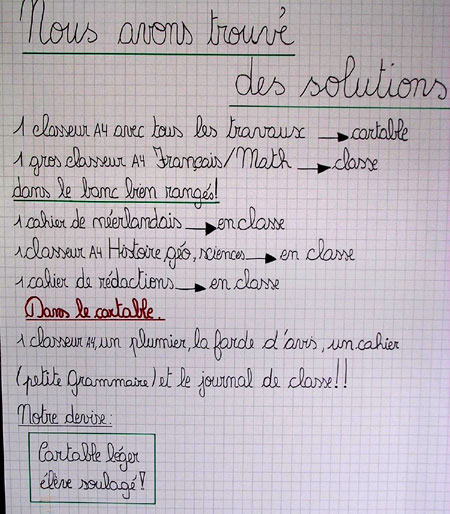 Nous avons trouvé
des solutions
1 classeur A4 avec tous les travaux → cartable
1 gros classeur A4 Français/Math → classe
dans le banc bien rangés!
1 cahier de néerlandais → en classe
1 classeur A4 Histoire, géo, sciences → en classe
1 cahier de rédactions → en classe
Dans le cartable.
1 classeur A4, un plumier, la farde d'avis, un cahier
(petite Grammaire) et le journal de classe!!
Notre devise:
Cartable léger
élève soulagé!